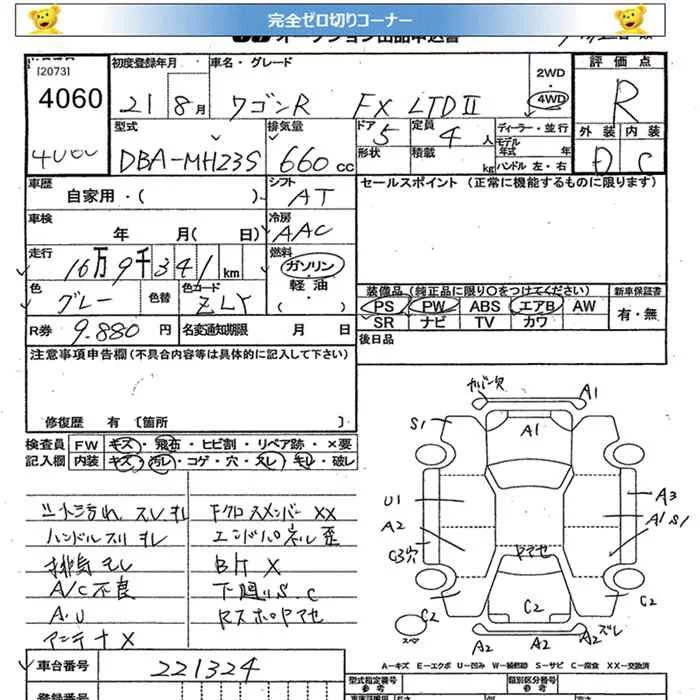 完全ゼロ切りコーナー
オークション出品申込書
[2073]
4060
4060
初度登録年月
21 8月
車名・グレード
ワゴンR FX LTDⅡ
2WD
・
4WD
評価点
R
外装 内装
D C
型式
DBA-MH23S
排気量
660cc
ドア
5
形状
定員
4人
積載
kg
ディーラー・並行
モデル年式 年
ハンドル 左・右
車歴
自家用・( )
シフト
AT
セールスポイント (正常に機能するものに限ります)
車検
年 月( 日)
冷房
AAC
走行
16万9千341km
燃料
ガソリン
軽油
( ・ )
色
グレー
色替
色コード
ZLY
装備品 (純正品に限り○をつけてください)
PS PW ABS エアB AW
SR ナビ TV カワ
新車保証書
有・無
R券
9.880円
名変通知期限 月 日
後日品
注意事項申告欄(不具合内容等は具体的に記入して下さい)
修復歴 有 [箇所 ]
検査員
記入欄
FW キズ・飛石・ヒビ割・リペア跡・×要
内装 キズ・汚レ・コゲ・穴・スレ・キレ・破レ
シート汚れ スレ キレ
ハンドルスリキレ
排気モレ
A/C不良
A.U
アンテナX
Fクロスメンバー XX
エンドパネル歪
Bドア X
下廻りS.C
カバー欠
A1
S1
A1
U1
A2
C3穴
A3
A1 S1
C2
C2
C2
スペア
A2
A2
A2 ズレ
A－キズ E－エクボ U－凹み W－補修跡 S－サビ C－腐食 XX－交換済
車台番号
221324
型式指定番号
参考
類別区分番号
参考
登録番号
長さ
幅
高さ